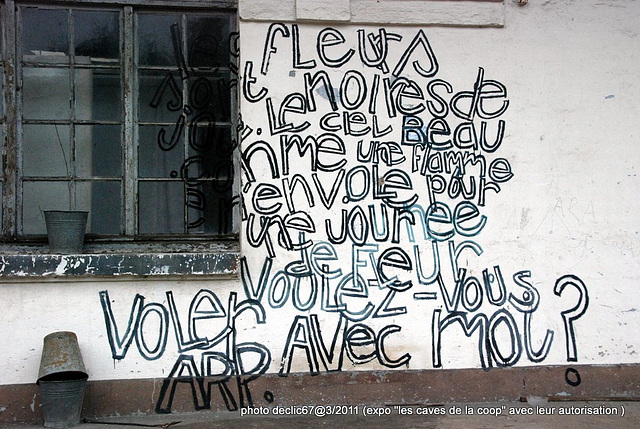 les fleurs
sont noires de
Le ciel beau
une flamme
envole pour
une journée
de Fleur
Voulez-vous
Voler avec moi?
ARP.
photo declic67@3/2011 (expo "les caves de la coop" avec leur autorisation )